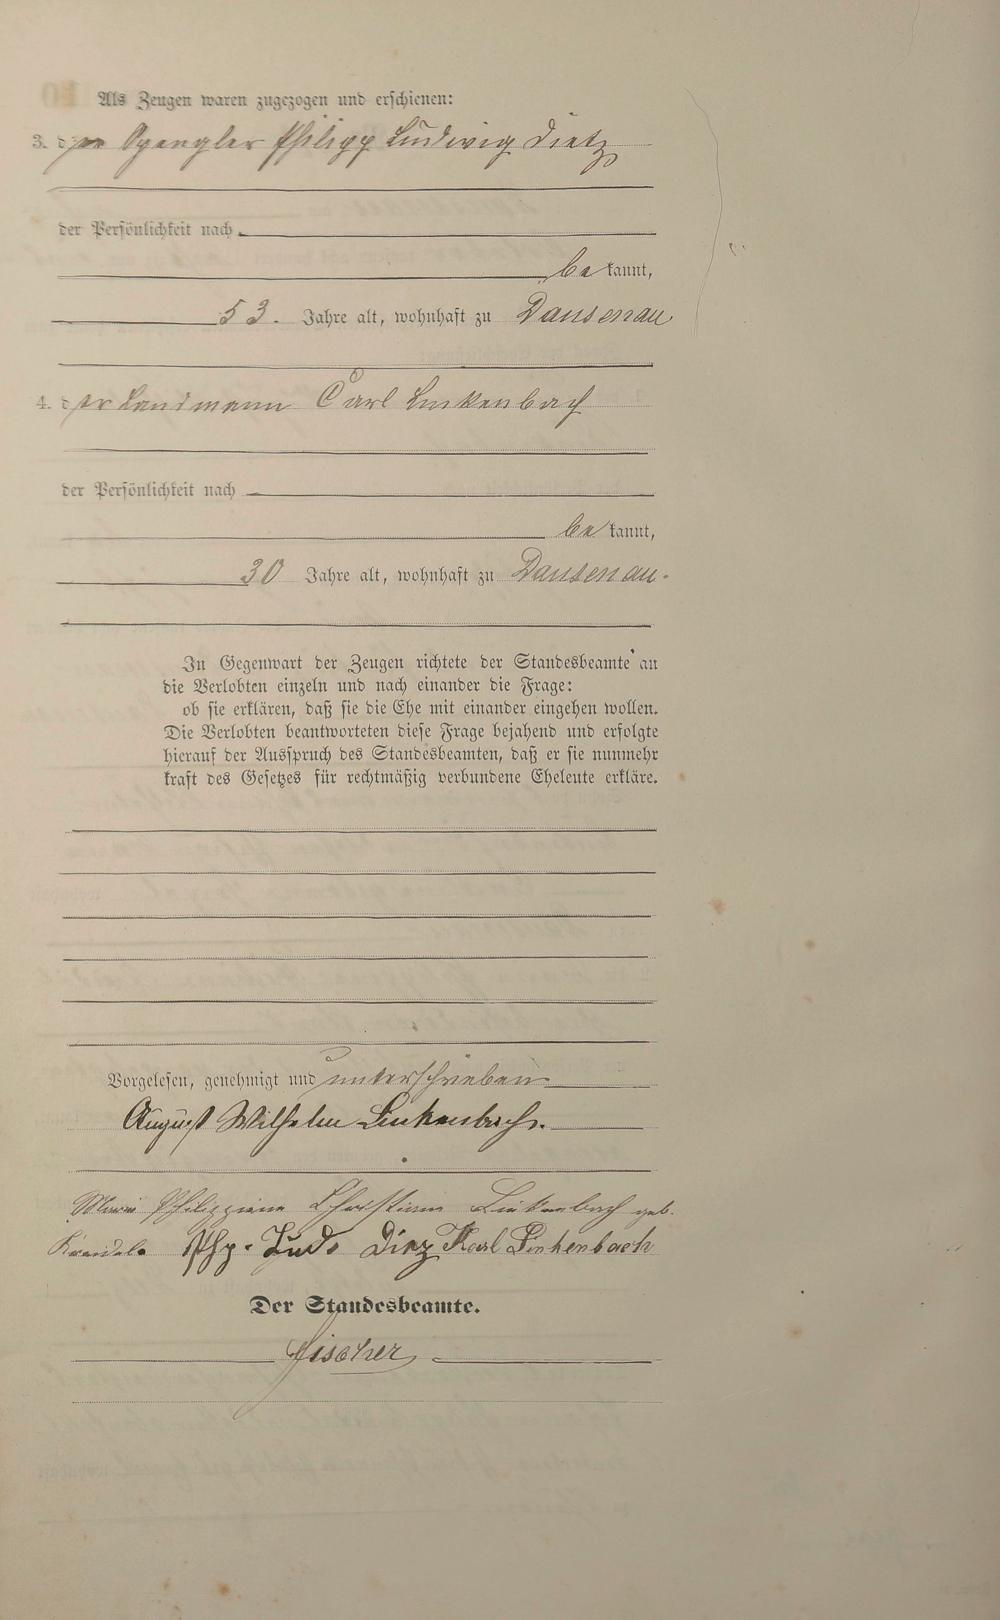 Als Zeugen waren zugezogen und erschienen:
3. der Spengler Philipp Ludwig Dietz
der Persönlichkeit nach
bekannt,
53. Jahre alt, wohnhaft zu Dausenau
4. der Landmann Carl Linkenbach
der Persönlichkeit nach
bekannt,
30 Jahre alt, wohnhaft zu Dausenau.
In Gegenwart der Zeugen richtete der Standesbeamte an
die Verlobten einzeln und nach einander die Frage:
ob sie erklären, daß sie die Ehe mit einander eingehen wollen.
Die Verlobten beantworteten diese Frage bejahend und erfolgte
hierauf der Ausspruch des Standesbeamten, daß er sie nunmehr
kraft des Gesetzes für rechtmäßig verbundene Eheleute erkläre.
Vorgelesen, genehmigt und unterschrieben
August Wilhelm Linkenbach.
Marie Philippine Christiane Linkenbach geb.
Php. Ludw Diez Karl Linkenbach
Der Standesbeamte.
Fischer